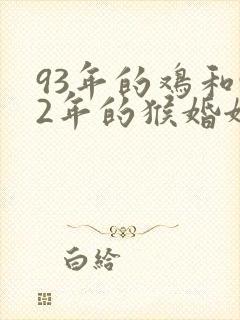 93年的鸡和
2年的猴婚
白给